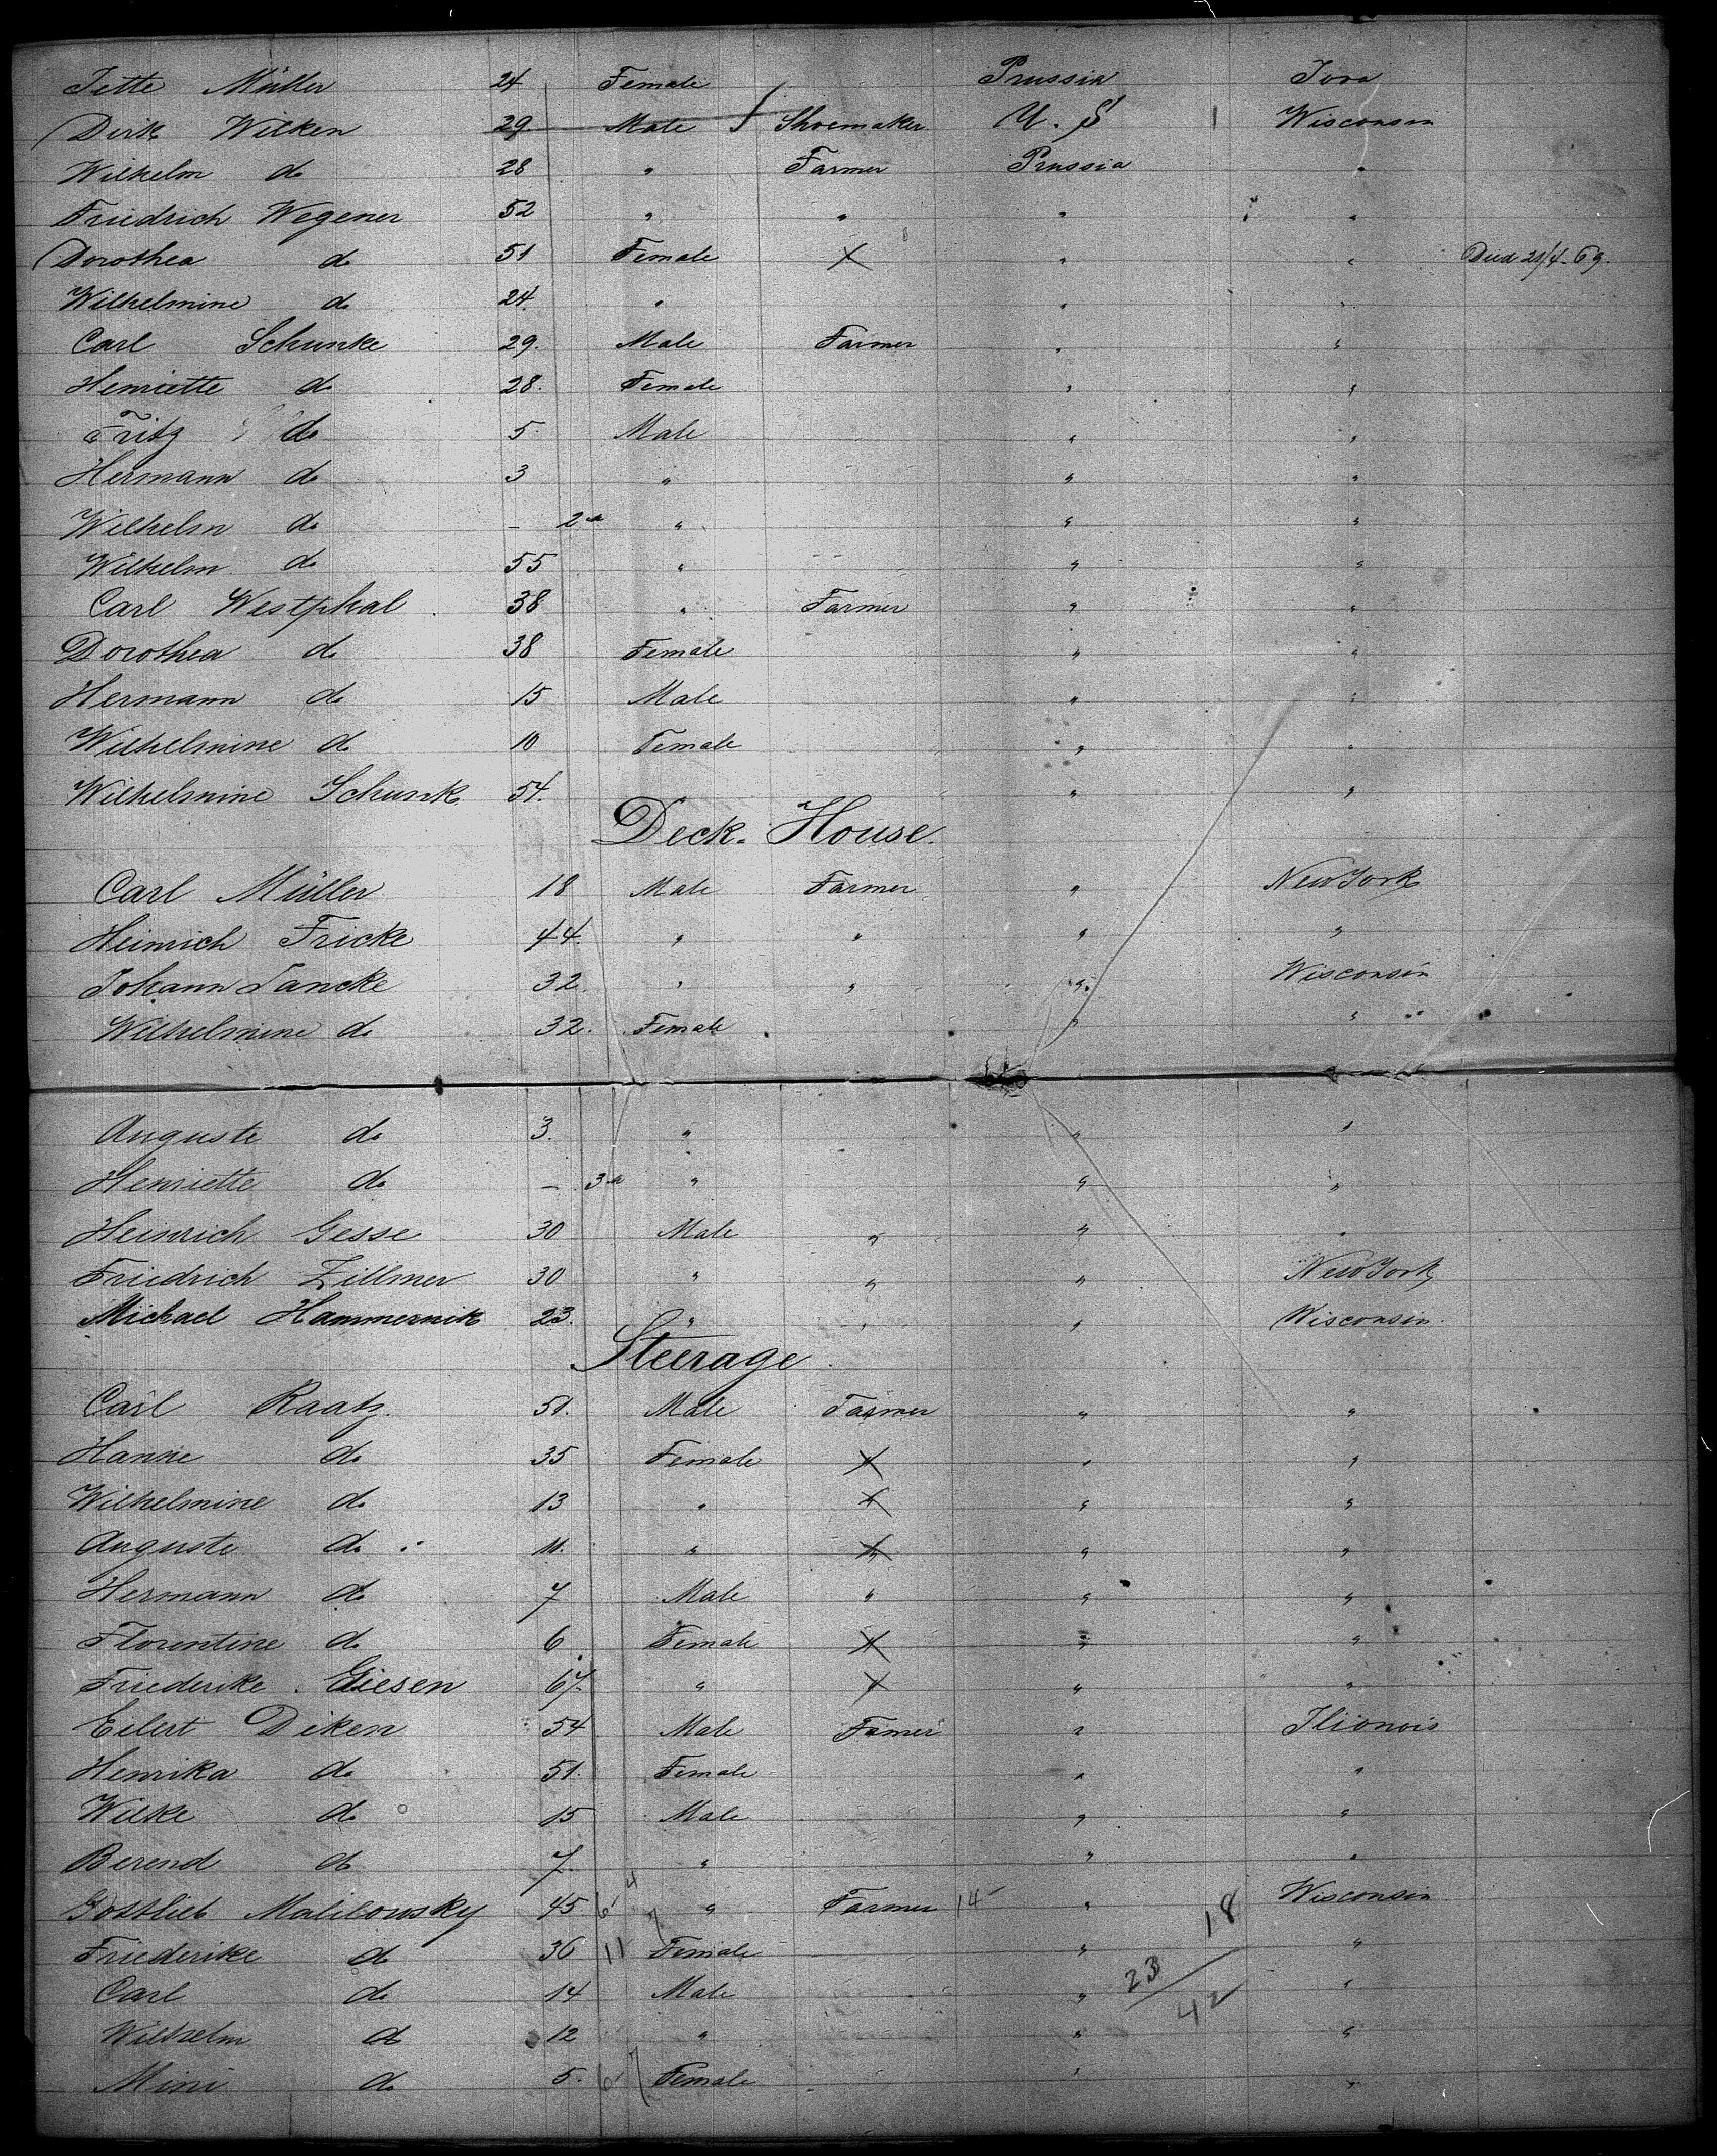 Jette Müller 24 Female Prussia Iova
Dirk Wilken 29. Male Shoemaker U. S Wisconsin
Wilhelm do 28 " Farmer Prussia "
Friedrich Wegener 52 " " " "
Dorothea do 51 Female " " Died 21/4-69.
Wilhelmine do 24. " " "
Carl Schunke 29. Male Farmer " "
Henriette do 28. Female " "
Fritz do 5. Male " "
Hermann do 3 " " "
Wilhelm do - 2 m " " "
Wilhelm do 55 " " "
Carl Westphal 38 " Farmer " "
Dorothea do 38 Female " "
Hermann do 15 Male " "
Wilhelmine do 10 Female " "
Wilhelmine Schunk 54. " "
Deck-House.
Carl Müller 18 Male Farmer " New York
Heinrich Fricke 44. " " " "
Johann Tancke 32 " " " Wisconsin
Wilhelmine do 32. Female " "
Auguste do 3. " " "
Henriette do - 3 m " " "
Heinrich Gesse 30 Male " " "
Friedrich Zillmer 30 " " " New York
Michael Hammernik 23. " " " Wisconsin.
Steerage
Carl Raatz. 51. Male Farmer " "
Hanne do 35 Female " "
Wilhelmine do 13 " " "
Auguste do 11. " " " "
Hermann do 7 Male " " "
Florentine do 6 Female " " "
Friederike Giesen 67. " " " "
Eilert Diken 54 Male Famer " Ilionois
Henrika do 51. Female " "
Wilke do 15 Male " "
Berend do 7. " " "
Gottlieb Malicowsky 45 6 4 " Farmer 14 " 18 Wisconsin
Friederike do 36 11 7 Female " "
Carl do 14 Male " 23 42 "
Wilhelm do 12 " " "
Mini do 5. 6 7 Female " "